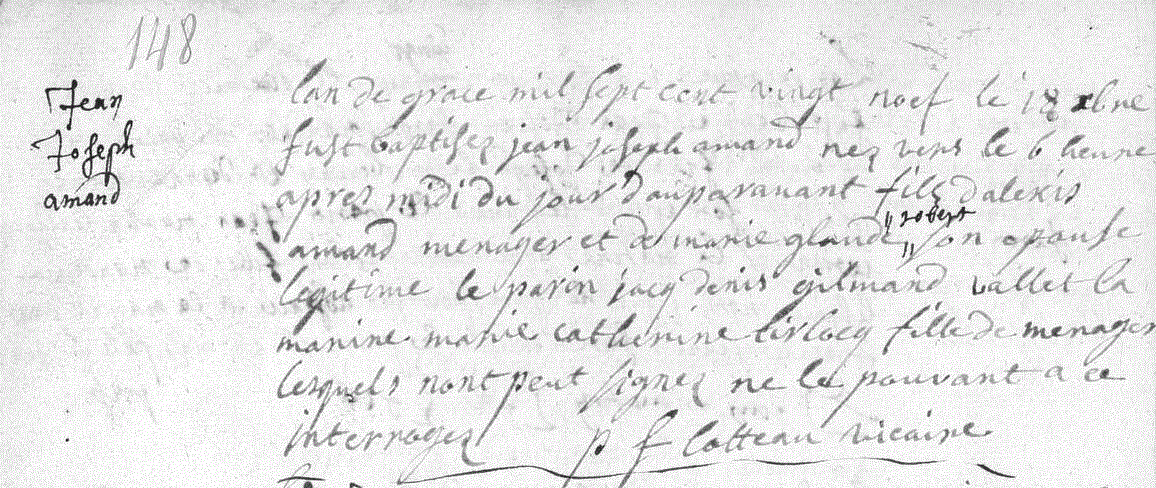 148
Jean
Joseph
amand
lan de grace mil sept cent vingt noef le 18 xbre
fust baptisez jean joseph amand nez vers le 6 heure
aprez midi du jour dauparavant filz dalexis
amand menager et de marie glaude " robert " son epouse
legitime le parin jacq denis gilmand vallet la
marine marie catherine lirlocq fille de menager
lesquels nont peut signez ne le pouvant a ce
interrogez p f lotteau vicaire